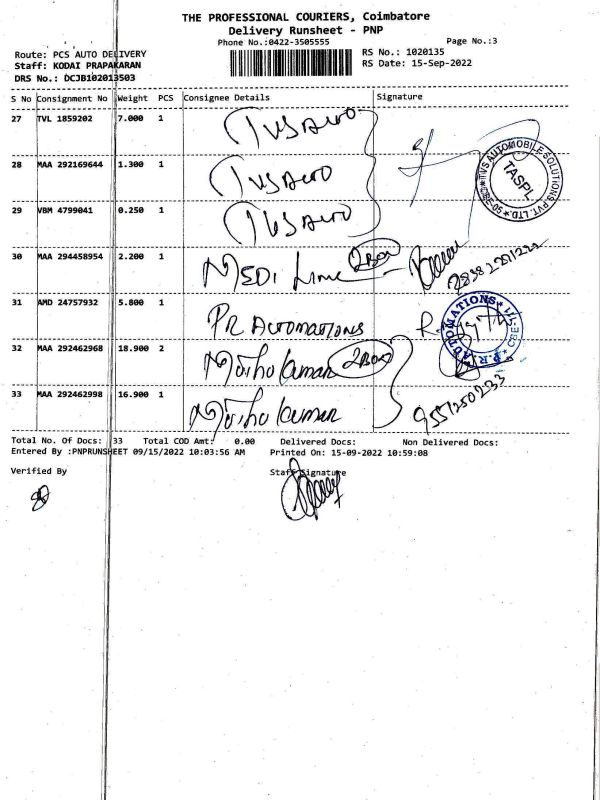 THE PROFESSIONAL COURIERS, Coimbatore
Delivery Runsheet - PNP
Phone No.:0422-3505555
Page No.:3
Route: PCS AUTO DELIVERY
RS No.: 1020135
Staff: KODAI PRAPAKARAN
RS Date: 15-Sep-2022
DRS No.: DCJB102013503
S No Consignment No Weight PCS Consignee Details Signature
27 TVL 1859202 7.000 1 TVS Auto
28 MAA 292169644 1.300 1 TVS Auto
TVS AUTOMOBILE SOLUTIONS PVT. LTD. CBE-05
TASPL
29 VBM 4799041 0.250 1 TVS Auto
30 MAA 294458954 2.200 1 MEDI Line 2 Box
31 AMD 24757932 5.800 1 PR AUTOMATIONS
P.R. AUTOMATIONS
32 MAA 292462968 18.900 2 Muthu kumar 2 Box
33 MAA 292462998 16.900 1 Muthu kumar
9551250233
Total No. Of Docs: 33 Total COD Amt: 0.00 Delivered Docs: Non Delivered Docs:
Entered By :PNPRUNSHEET 09/15/2022 10:03:56 AM Printed On: 15-09-2022 10:59:08
Verified By Staff Signature